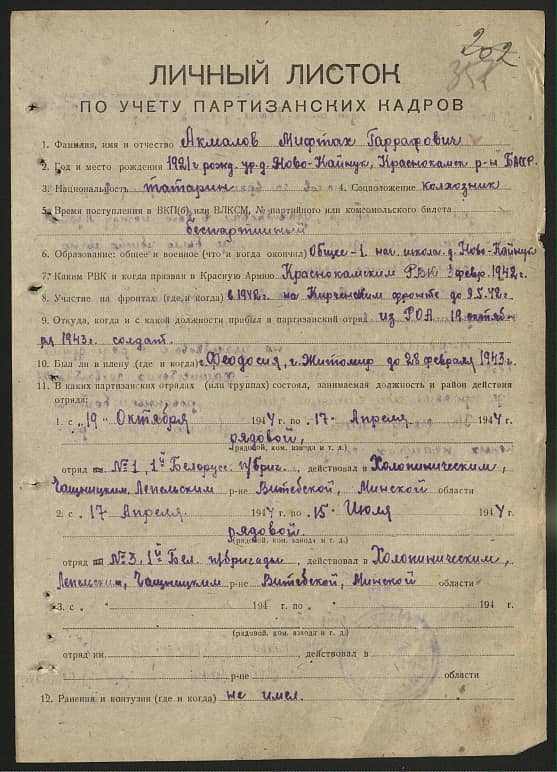 202
351
ЛИЧНЫЙ ЛИСТОК
ПО УЧЕТУ ПАРТИЗАНСКИХ КАДРОВ
1. Фамилия, имя и отчество Акмалов Мифтах Гаррафович
2. Год и место рождения 1921 г рожд. ур. д. Ново-Кайнук, Краснокамск р-н БАССР.
3. Национальность татарин 4. Соцположение колхозник
5. Время поступления в ВКП(б) или ВЛКСМ, № партийного или комсомольского билета
беспартийный
6. Образование: общее и военное (что и когда окончил) Общее-1. нач. школа. д. Ново-Кайнук
7. Каким РВК и когда призван в Красную Армию Краснокамским РВК февр. 1942 г.
8. Участие на фронтах (где и когда) в 1942 г. на Кирченском фронте до 9.5.42 г.
9. Откуда, когда и с какой должности прибыл в партизанский отряд из РОА 19 октяб
ря 1943 г. солдат.
10. Был ли в плену (где и когда) г. Феодосия, г. Житомир до 28 февраля 1943 г.
11. В каких партизанских отрядах (или группах) состоял, занимаемая должность и район действия
отряда:
1. с „19" Октября 1944 г. по „17" Апреля 1944 г.
рядовой,
(рядовой, ком. взвода и т. д.)
отряд №1, 1й Белорусс. п/бриг., действовал в Холопиническим,
Чашницким, Лепельским р-не Витебской, Минской области
2. с „17" Апреля 1944 г. по „15" Июля 1944 г.
рядовой.
(рядовой, ком. взвода и т. д.)
отряд №3, 1й Бел. п/бригады, действовал в Холопиническим,
Лепельским, Чашницким р-не Витебской, Минской области
3. с 194 г. по 194 г.
(рядовой, ком. взвода и т. д.)
отряд им. действовал в
р-не области
12. Ранения и контузии (где и когда) не имел.